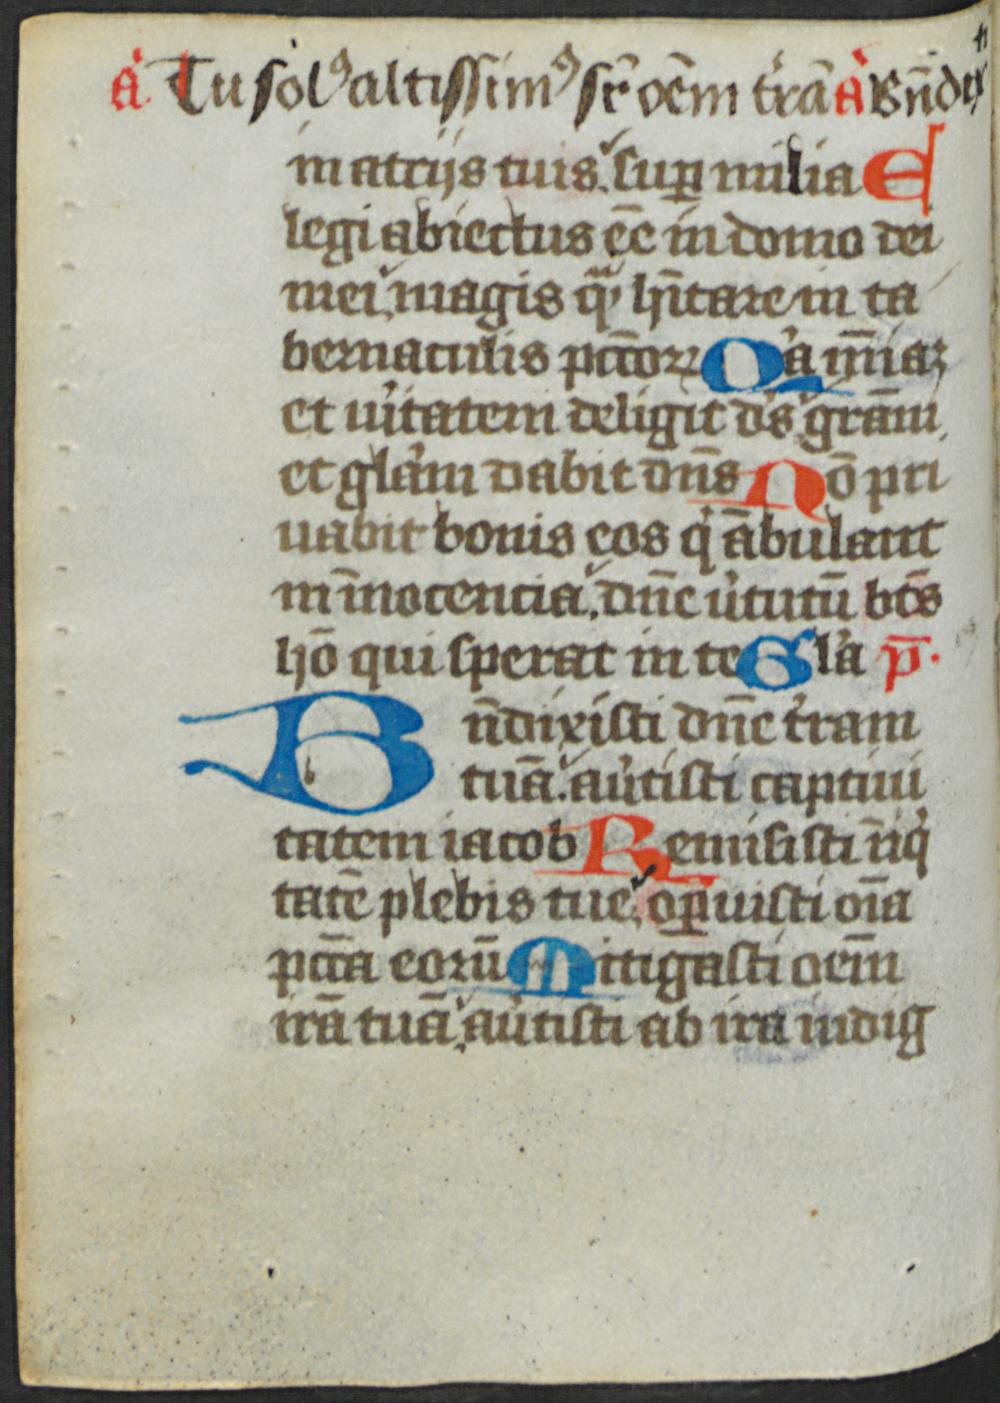 a̾ Tu solꝰ altissimꝰ sr̄ oēm t̾rā a̾ Bn̄dix
in atrijs tuis. suꝑ milia E
legi abiectus eē in domo dei
mei, magis qͣ̄ hītare in ta
bernaculis pctōrꝝ Qa̾ mīaꝫ
et u̾itatem deligit ds̄ grām
et glām dabit dn̄s Nō pri
uabit bonis eos q̾ ābulant
in īnocencia, dn̄e u̾tutū bt̄s
hō qui sperat in te Gla̾ p̄.
Bn̄dixisti dn̄e t̾ram
tuā. au̾tisti captiui
tatem iacob Remisisti īiq̾
tatē plebis tue, oꝑuisti oīa
pctā eorū Mitigasti oēm
irā tuā, au̾tisti ab ira indig